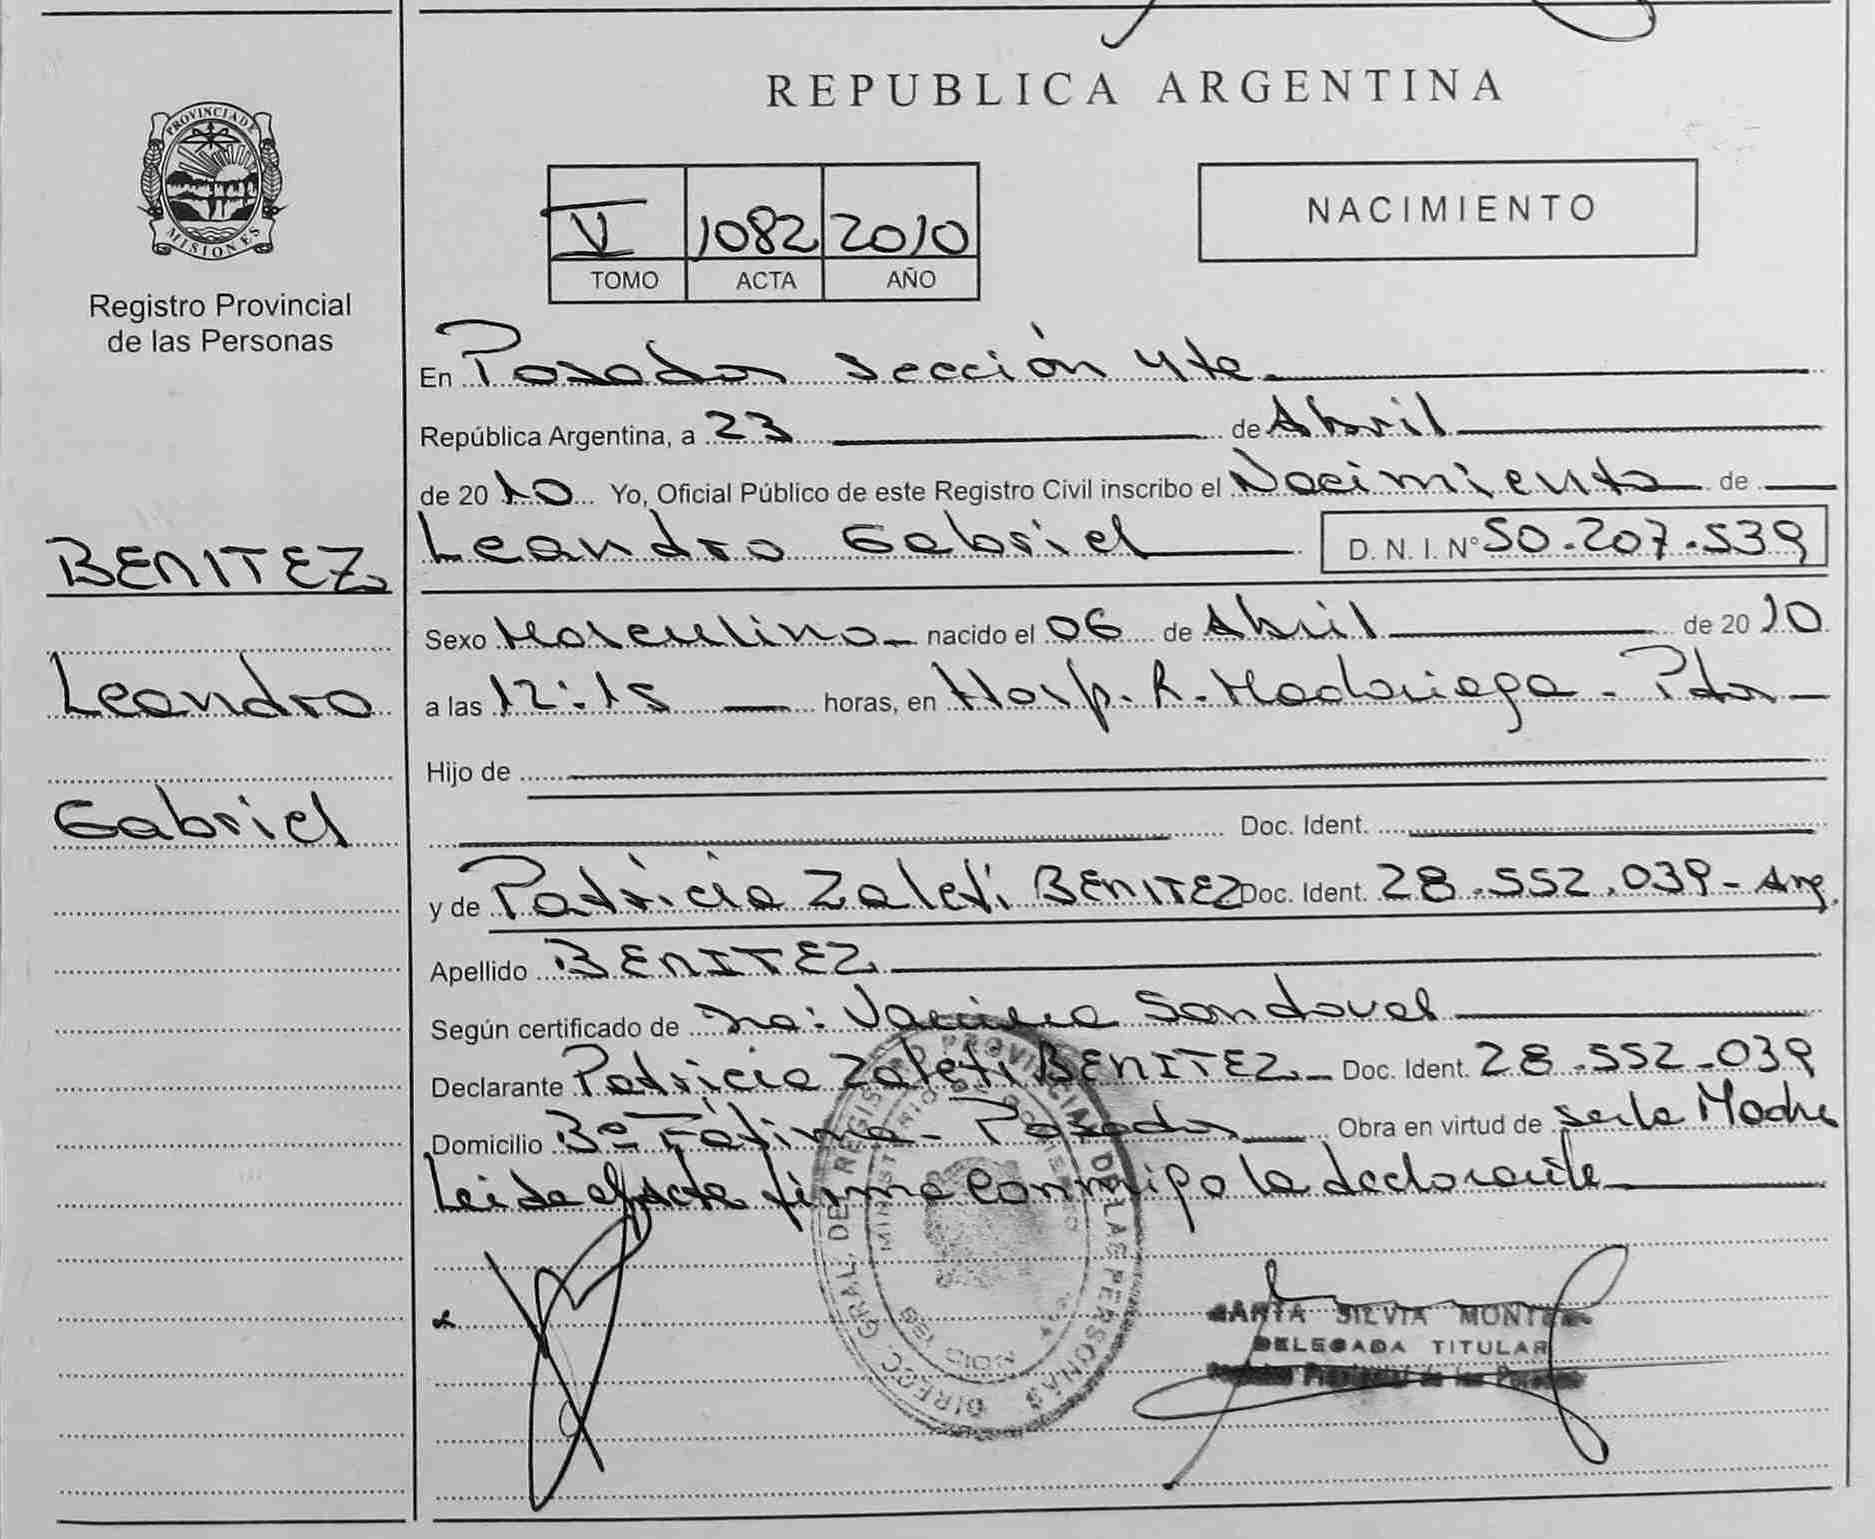 REPUBLICA ARGENTINA
PROVINCIA DE MISIONES
Registro Provincial
de las Personas
V 1082 2010
TOMO ACTA AÑO
NACIMIENTO
BENITEZ
Leandro
Gabriel
En Posadas sección 4ta
República Argentina, a 23 de Abril
de 2010 Yo, Oficial Público de este Registro Civil inscribo el Nacimiento de
Leandro Gabriel D. N. I. N° 50.207.539
Sexo Masculino nacido el 06 de Abril de 2010
a las 12:15 horas, en Hosp. R. Madariaga - Pdas
Hijo de
Doc. Ident.
y de Patricia Zaleti BENITEZ Doc. Ident. 28.552.039 - Arg.
Apellido BENITEZ
Según certificado de Sandoval
Declarante Patricia Zaleti BENITEZ Doc. Ident. 28.552.039
Domicilio B° Fátima - Posadas Obra en virtud de ser la Madre
Leida el Acta firma conmigo la declarante
x
DIRECC. GRAL. DE REGISTRO PROVINCIAL DE LAS PERSONAS
MINISTERIO DE GOBIERNO
MISIONES
SILVIA
DELEGADA TITULAR
Registro Provincial de las Personas